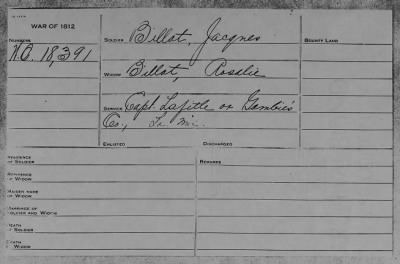 WAR OF 1812
NUMBERS
W.O. 18,391
SOLDIER Billot, Jacques
WIDOW Billot, Rosalie
SERVICE Capt Lafitte or Gambie's
Co., La Mil.
ENLISTED DISCHARGED
BOUNTY LAND
RESIDENCE
OF SOLDIER
RESIDENCE
OF WIDOW
MAIDEN NAME
OF WIDOW
MARRIAGE OF
SOLDIER AND WIDOW
DEATH
OF SOLDIER
DEATH
OF WIDOW
REMARKS